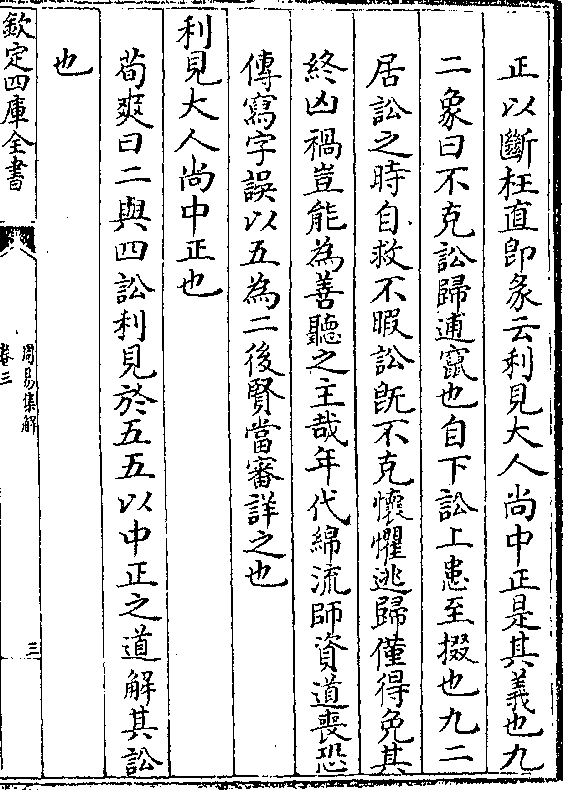 正以斷枉直即彖云利見大人尚中正是其義也九
二象曰不克訟歸逋竄也自下訟上患至掇也九二
居訟之時自救不暇訟既不克懷懼逃歸僅得免其
終凶禍豈能為善聽之主哉年代綿流師資道喪恐
傳寫字誤以五為二後賢當審詳之也
利見大人尚中正也
荀爽曰二與四訟利見於五五以中正之道解其訟
也
欽定四庫全書
周易集解
卷三
三